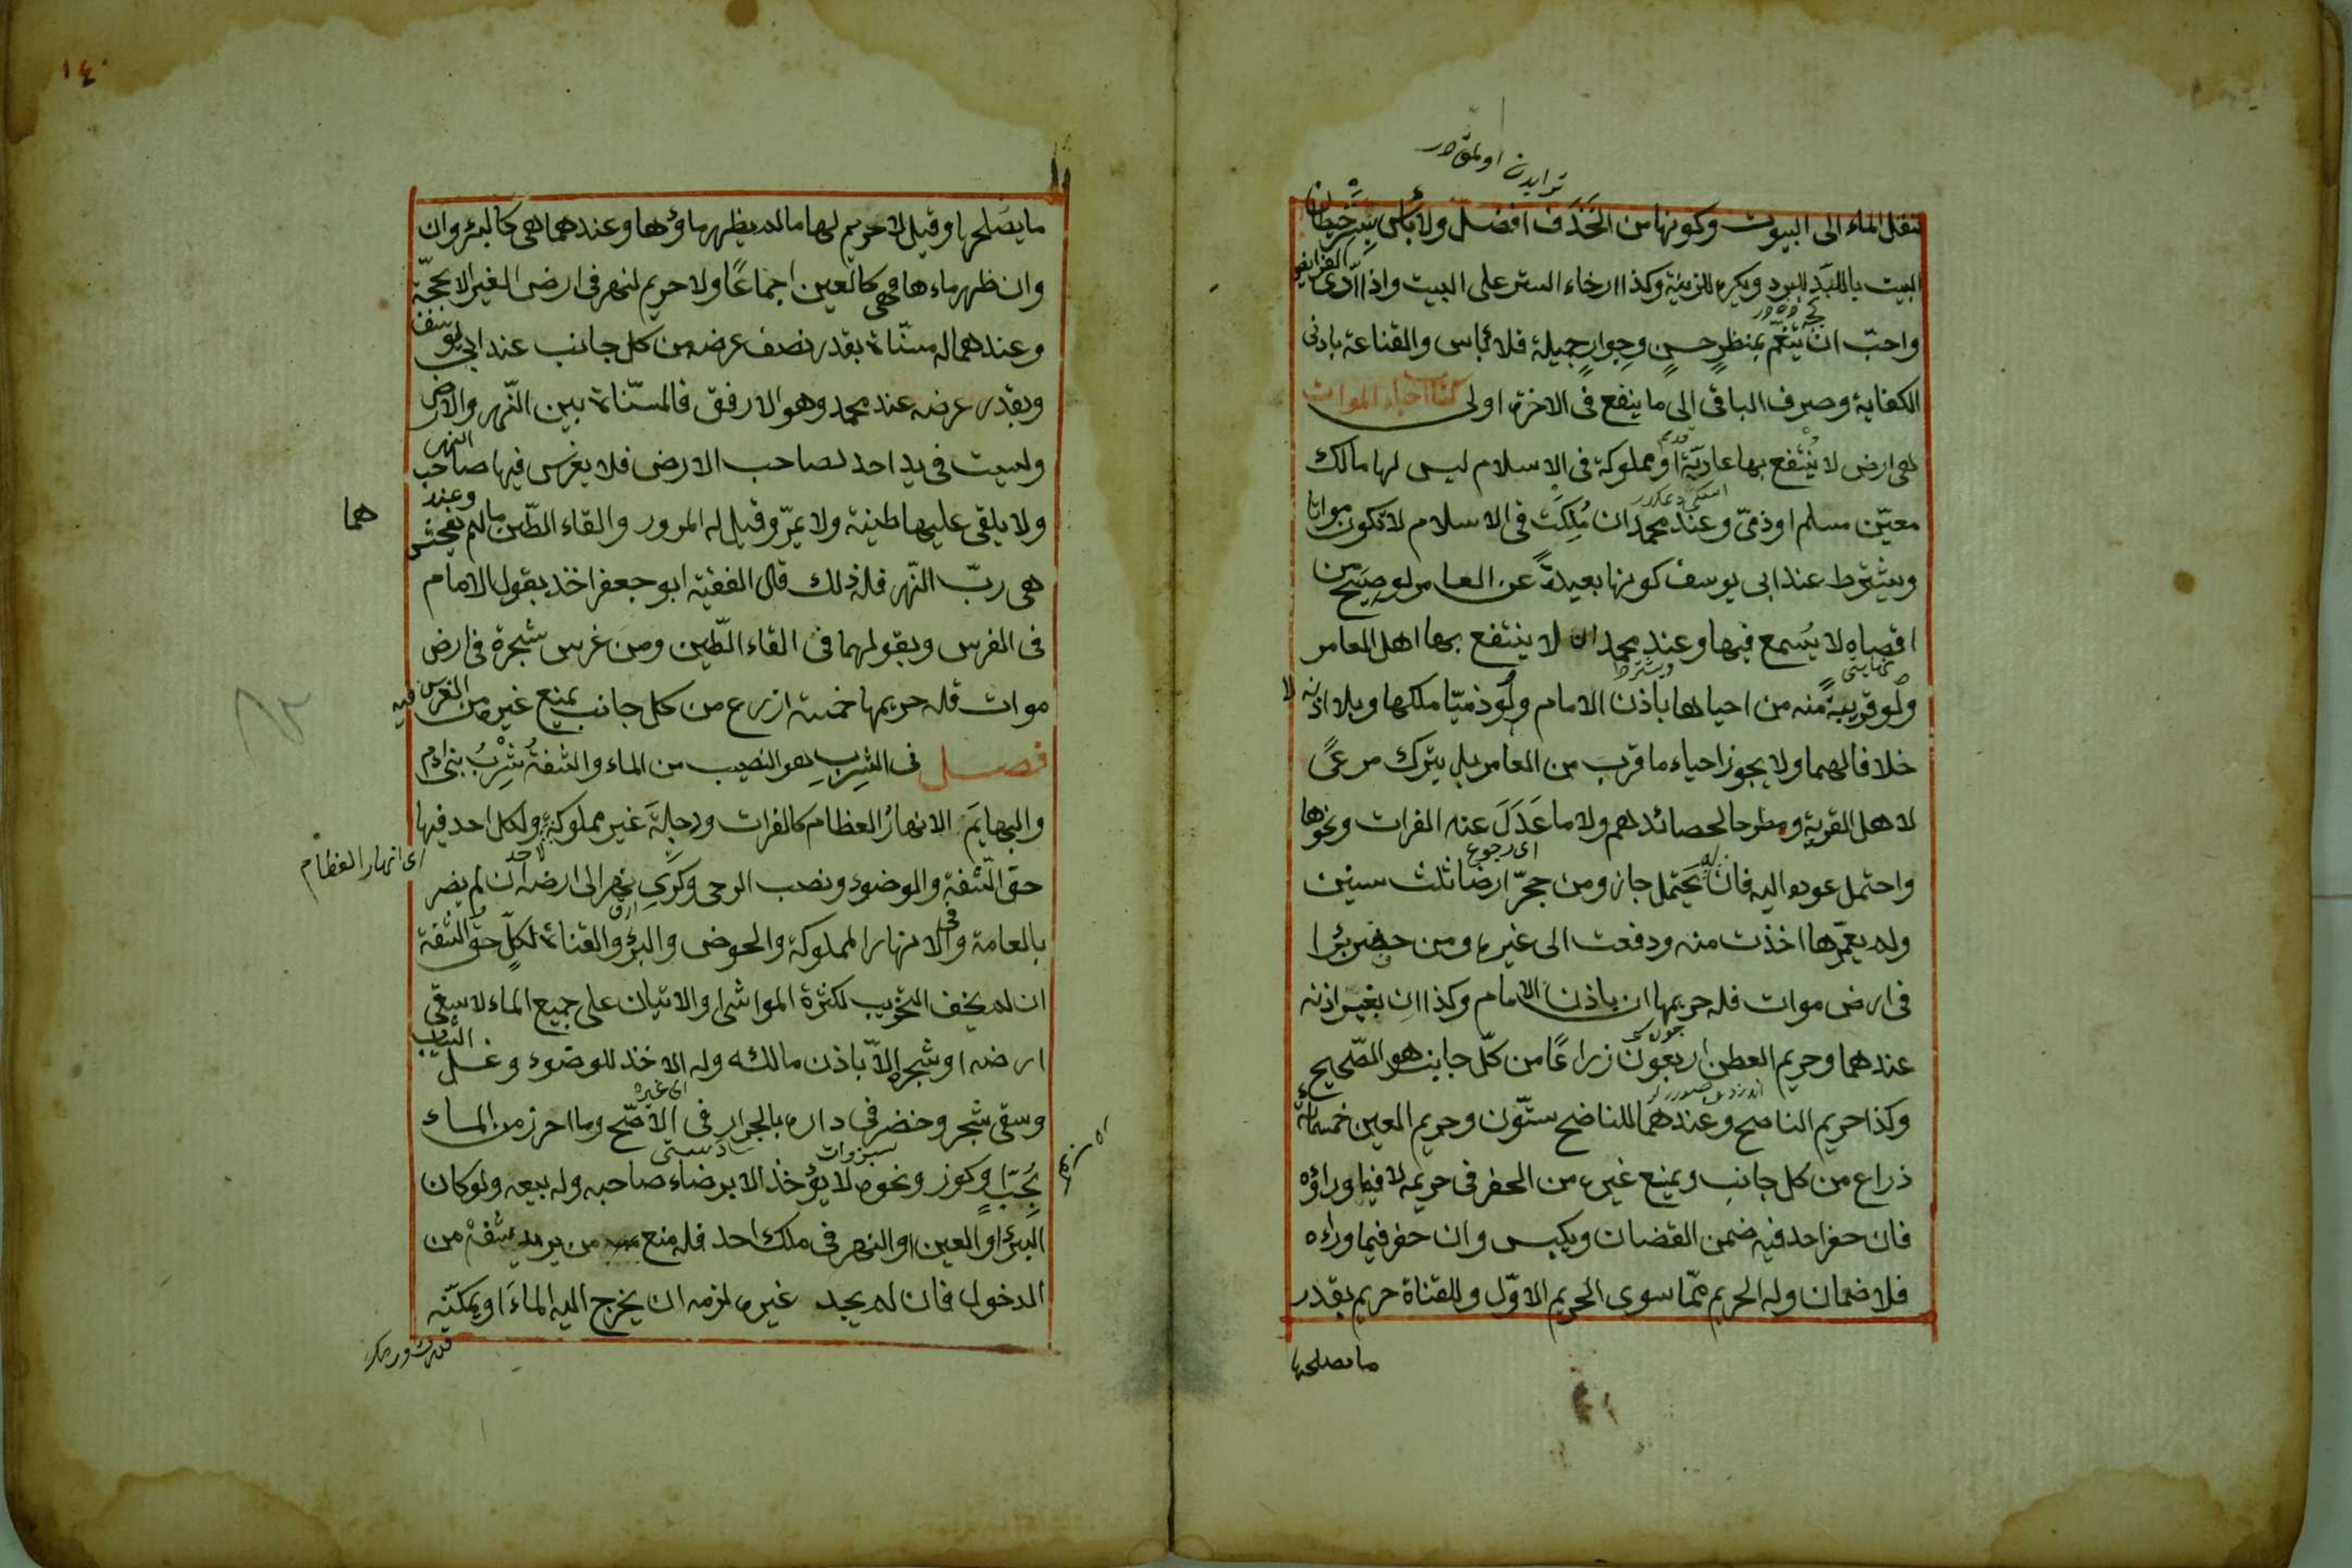 تنقل الماء الى البيوت وكونها من الخذف افضل ولا بأس بستر حيطان
البيت باللبد للبرد ويكره للزينة وكذا ارخاء الستر على البيت واذا ادى الفرايض
واحبّ ان يتنعّم بمنظرٍ حسنٍ وجوارٍ جميلة فلا بأس والقناعة بادنى
الكفاية وصرف الباقى الى ما ينفع فى الاخرة اولى كتاب احياء الموات
هى ارض لا يُنتفع بها عاديّة او مملوكة فى الاسلام ليس لها مالك
معيّن مسلم او ذمىّ وعند محمد ان مُلِكَتْ فى الاسلام لا تكون مواتا
ويشترط عند ابى يوسف كونها بعيدةً عن العامر لو صيح من
اقصاه لا يُسمع فيها وعند محمد ان لا ينتفع بها اهل العامر
ولو قريبةً منه من احياها باذن الامام ولو ذميّا ملكها وبلا اذنه لا
خلافا لهما ولا يجوز احياء ما قرب من العامر بل يترك مرعىً
لاهل القرية ومطرحا لحصائدهم ولا ما عَدَلَ عنه الفرات ونحوها
واحتمل عوده اليه فان لم يَحتمل جاز ومن حجّر ارضا ثلث سنين
ولم يعمّرها اخذت منه ودفعت الى غيره ومن حفر بئرا
فى ارض موات فله حريمها ان باذن الامام وكذا ان بغير اذنه
عندهما وحريم العطن اربعون زراعًا من كلّ جانب هو الصّحيح
وكذا حريم الناضح وعندهما للناضح ستّون وحريم العين خمسمائة
ذراع من كل جانب ويمنع غيره من الحفر فى حريمه لا فيما وراؤه
فان حفر احد فيه ضمن النقصان ويكبس وان حفر فيما وراءه
فلا ضمان وله الحريم ممّا سوى الحريم الاوّل وللقناة حريم بقدر
ما يصلحها
١٤٠
ما يصلحها وقيل لا حريم لها مالم يظهر ماؤها وعندهما هى كالبئر وان
وان ظهر ماءها فهى كالعين اجماعًا ولا حريم لنهر فى ارض الغير الا بحجّة
وعندهما له مسنّاة بقدر نصف عرضه من كل جانب عند ابى يوسف
وبقدر عرضه عند محمد وهو الارفق فالمسنّاة بين النّهر والارض
وليست فى يد احد لصاحب الارض فلا يغرس فيها صاحب النهر
ولا يلقى عليها طينة ولا يمرّ وقيل له المرور والقاء الطّين مالم يفحش وعند
هما
هى ربّ النّهر فله ذلك قال الفقيه ابو جعفر اخذ بقول الامام
فى الغرس وبقولهما فى القاء الطّين ومن غرس شجرة فى ارض
موات فله حريمها خمسة ازرع من كل جانب يمنع غيره من الغرس فيه
فصل فى الشِرب هو النصيب من الماء والشفة شُرْبُ بنى ادم
والبهايَم الانهارُ العظام كالفرات ودجلةَ غير مملوكة ولكل احد فيها
اى انهار العظام
حق الشّفة والوضوء ونصب الرحى وكَرىِ نهر الى ارضه ان لم يضر
بالعامة وفى الانهار المملوكة والحوض والبئر والقناة لكلٍّ حق الشفة
ان لم يخف التخريب لكثرة المواشى والاتيان على جميع الماء لا سقى
ارضه او شجره إلاّ باذن مالكه وله الاخذ للوضوء وغسل الثياب
وسقى شجر وخضر فى داره بالجرار فى الاصّح وما احرز من الماء
بُحبّ وكوز ونحوه لا يؤخذ الا برضاء صاحبه وله بيعه ولو كان
البئر او العين او النهر فى ملك احد فله منع من يريد شفة من
الدخول فان لم يجد غيره لزمه ان يخرج اليه الماءَ او يمكنّه